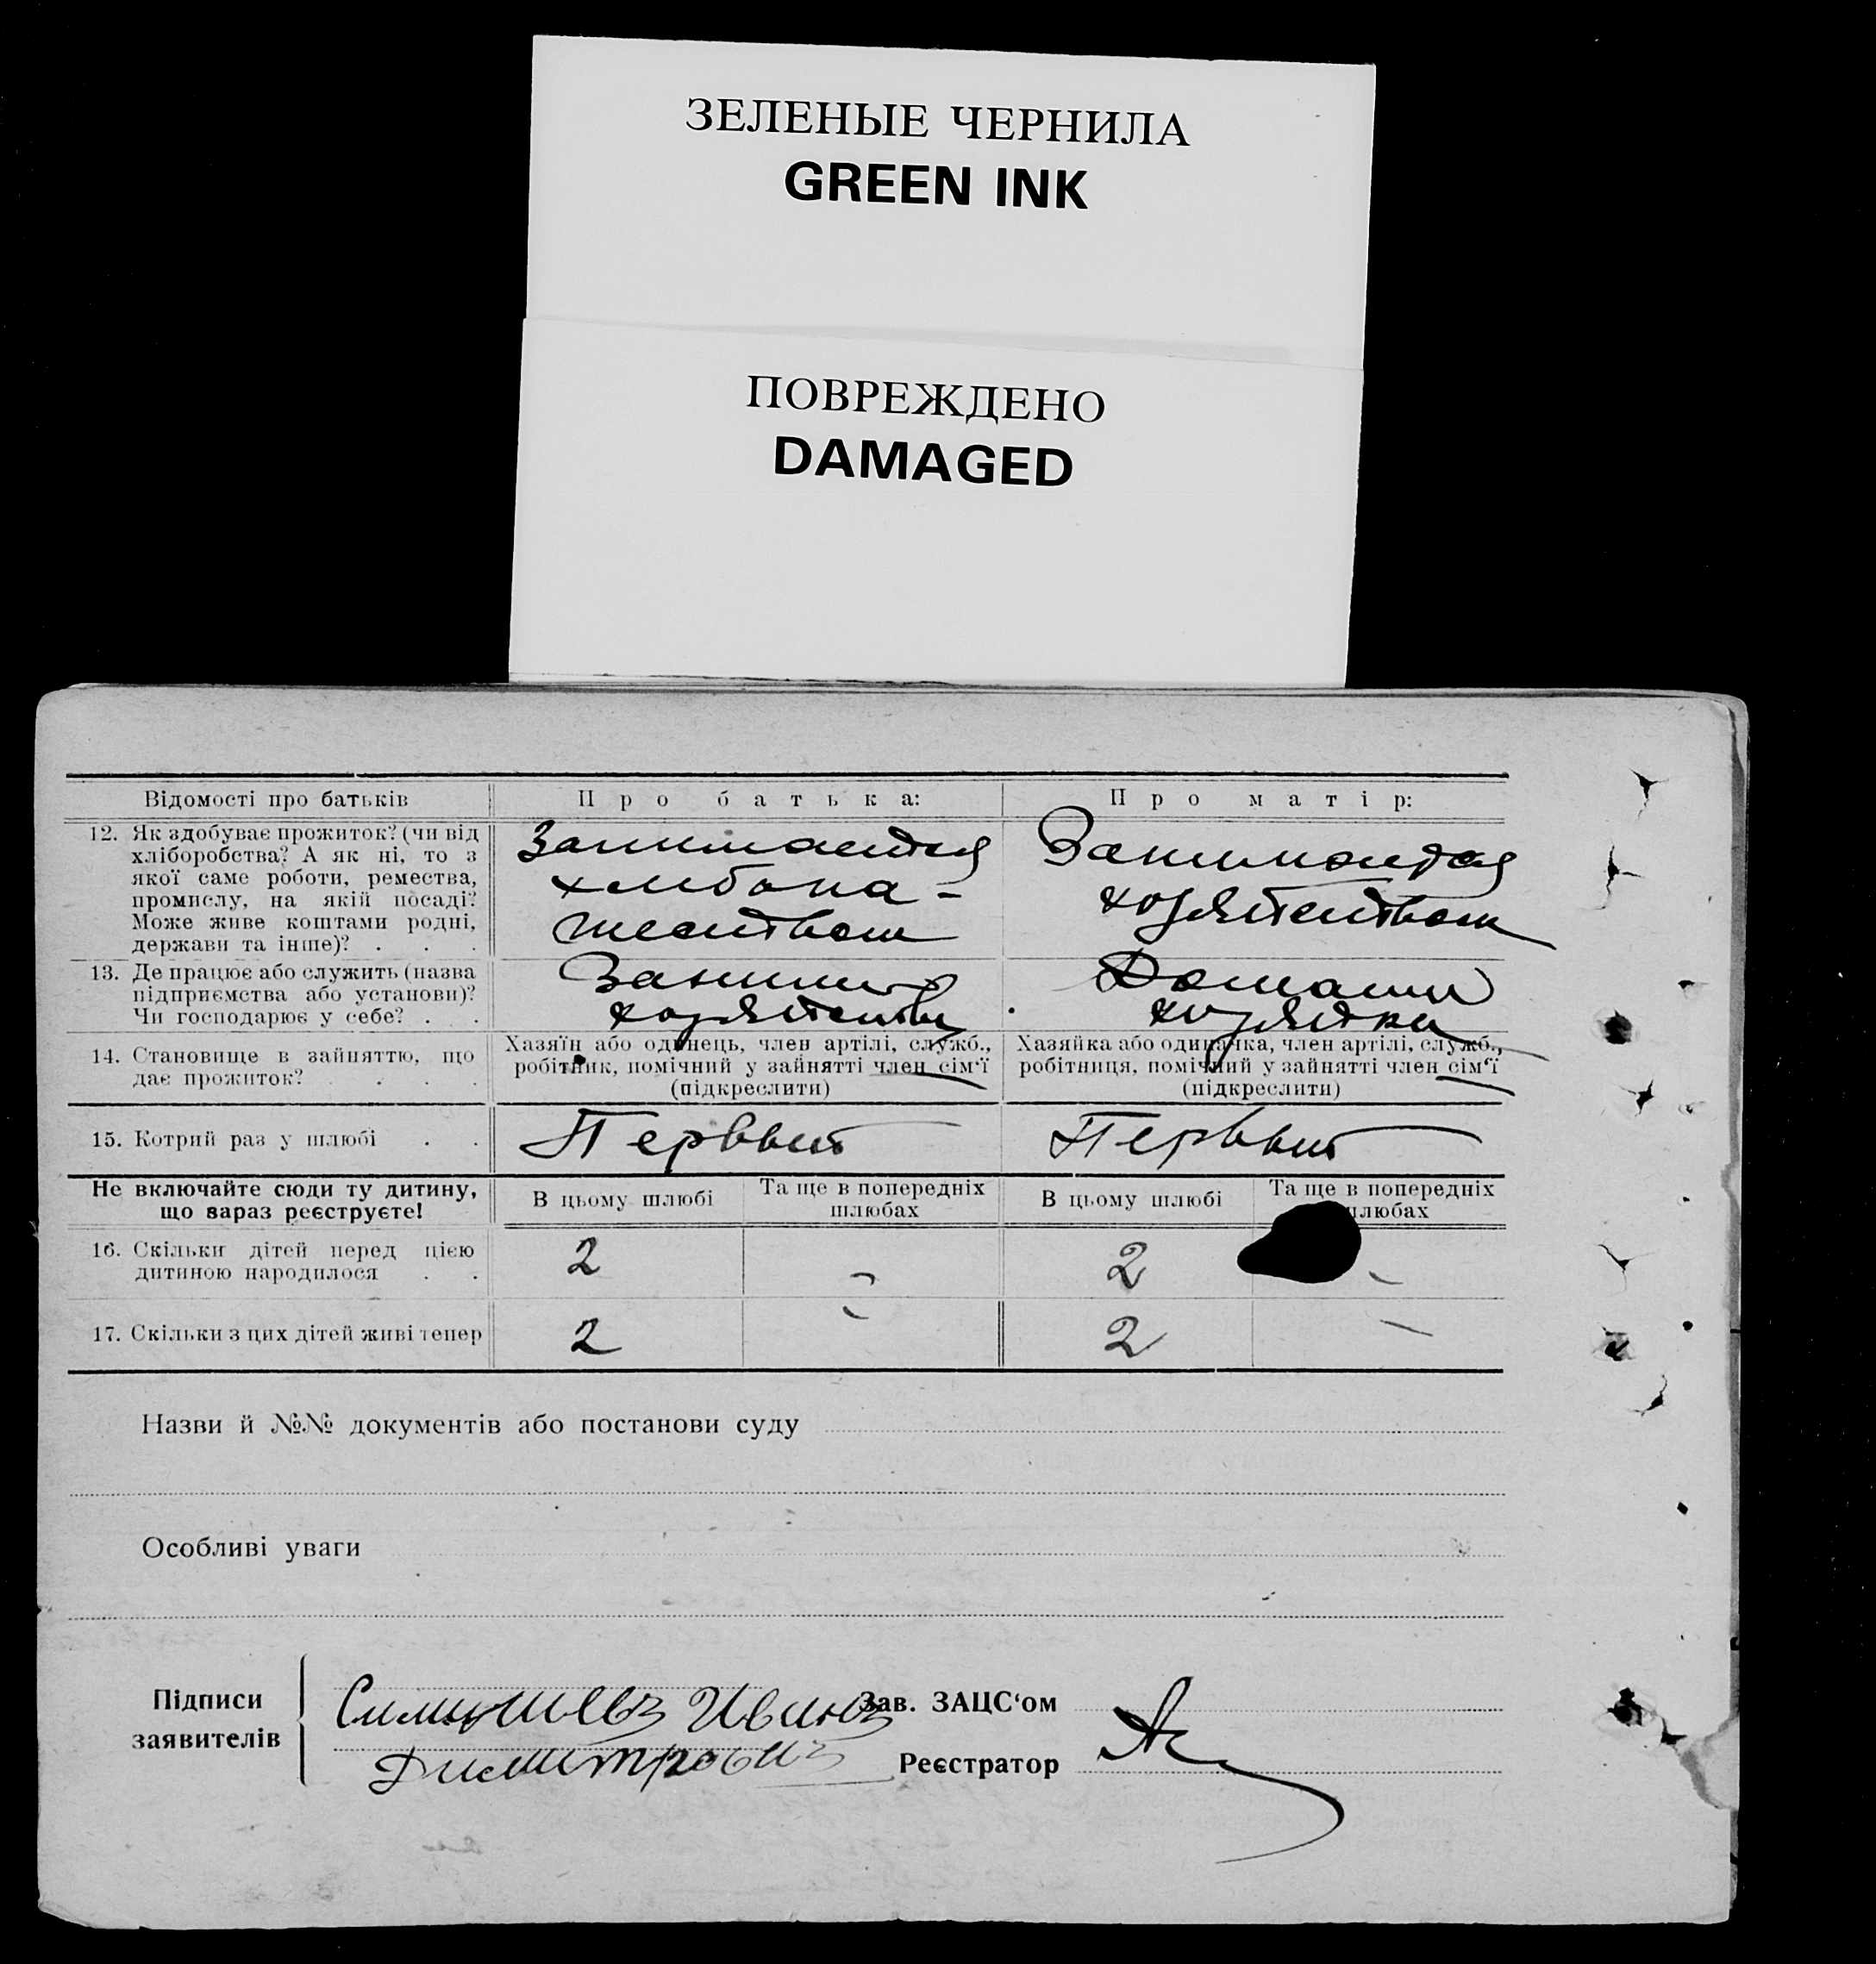 ЗЕЛЕНЫЕ ЧЕРНИЛА
GREEN INK
ПОВРЕЖДЕНО
DAMAGED
Відомості про батьків
Про батька:
Про матір:
12. Як здобуває прожиток? (чи від
хліборобства? А як ні, то з
якої саме роботи, ремества,
промислу, на якій посаді?
Може живе коштами родні,
держави та інше)? . . .
Занимается
хлебопа-
шеством
Занимается
хозяйством
13. Де працює або служить (назва
підприємства або установи)?
Чи господарює у себе? . .
Домашн
хозяйка
14. Становище в зайняттю, що
дає прожиток? . . .
Хазяїн або одинець, член артілі, служб.,
робітник, помічний у зайнятті член сім'ї
(підкреслити)
Хазяйка або одиначка, член артілі, служб.,
робітниця, помічний у зайнятті член сім'ї
(підкреслити)
15. Котрий раз у шлюбі . .
Первый
Первый
Не включайте сюди ту дитину,
що зараз реєструєте!
В цьому шлюбі
Та ще в попередніх
шлюбах
В цьому шлюбі
Та ще в попередніх
шлюбах
16. Скільки дітей перед цією
дитиною народилося . .
2
–
2
–
17. Скільки з цих дітей живі тепер
2
–
2
–
Назви й №№ документів або постанови суду
Особливі уваги
Підписи
заявителів
Иванъ
Зав. ЗАЦС'ом
Реєстратор